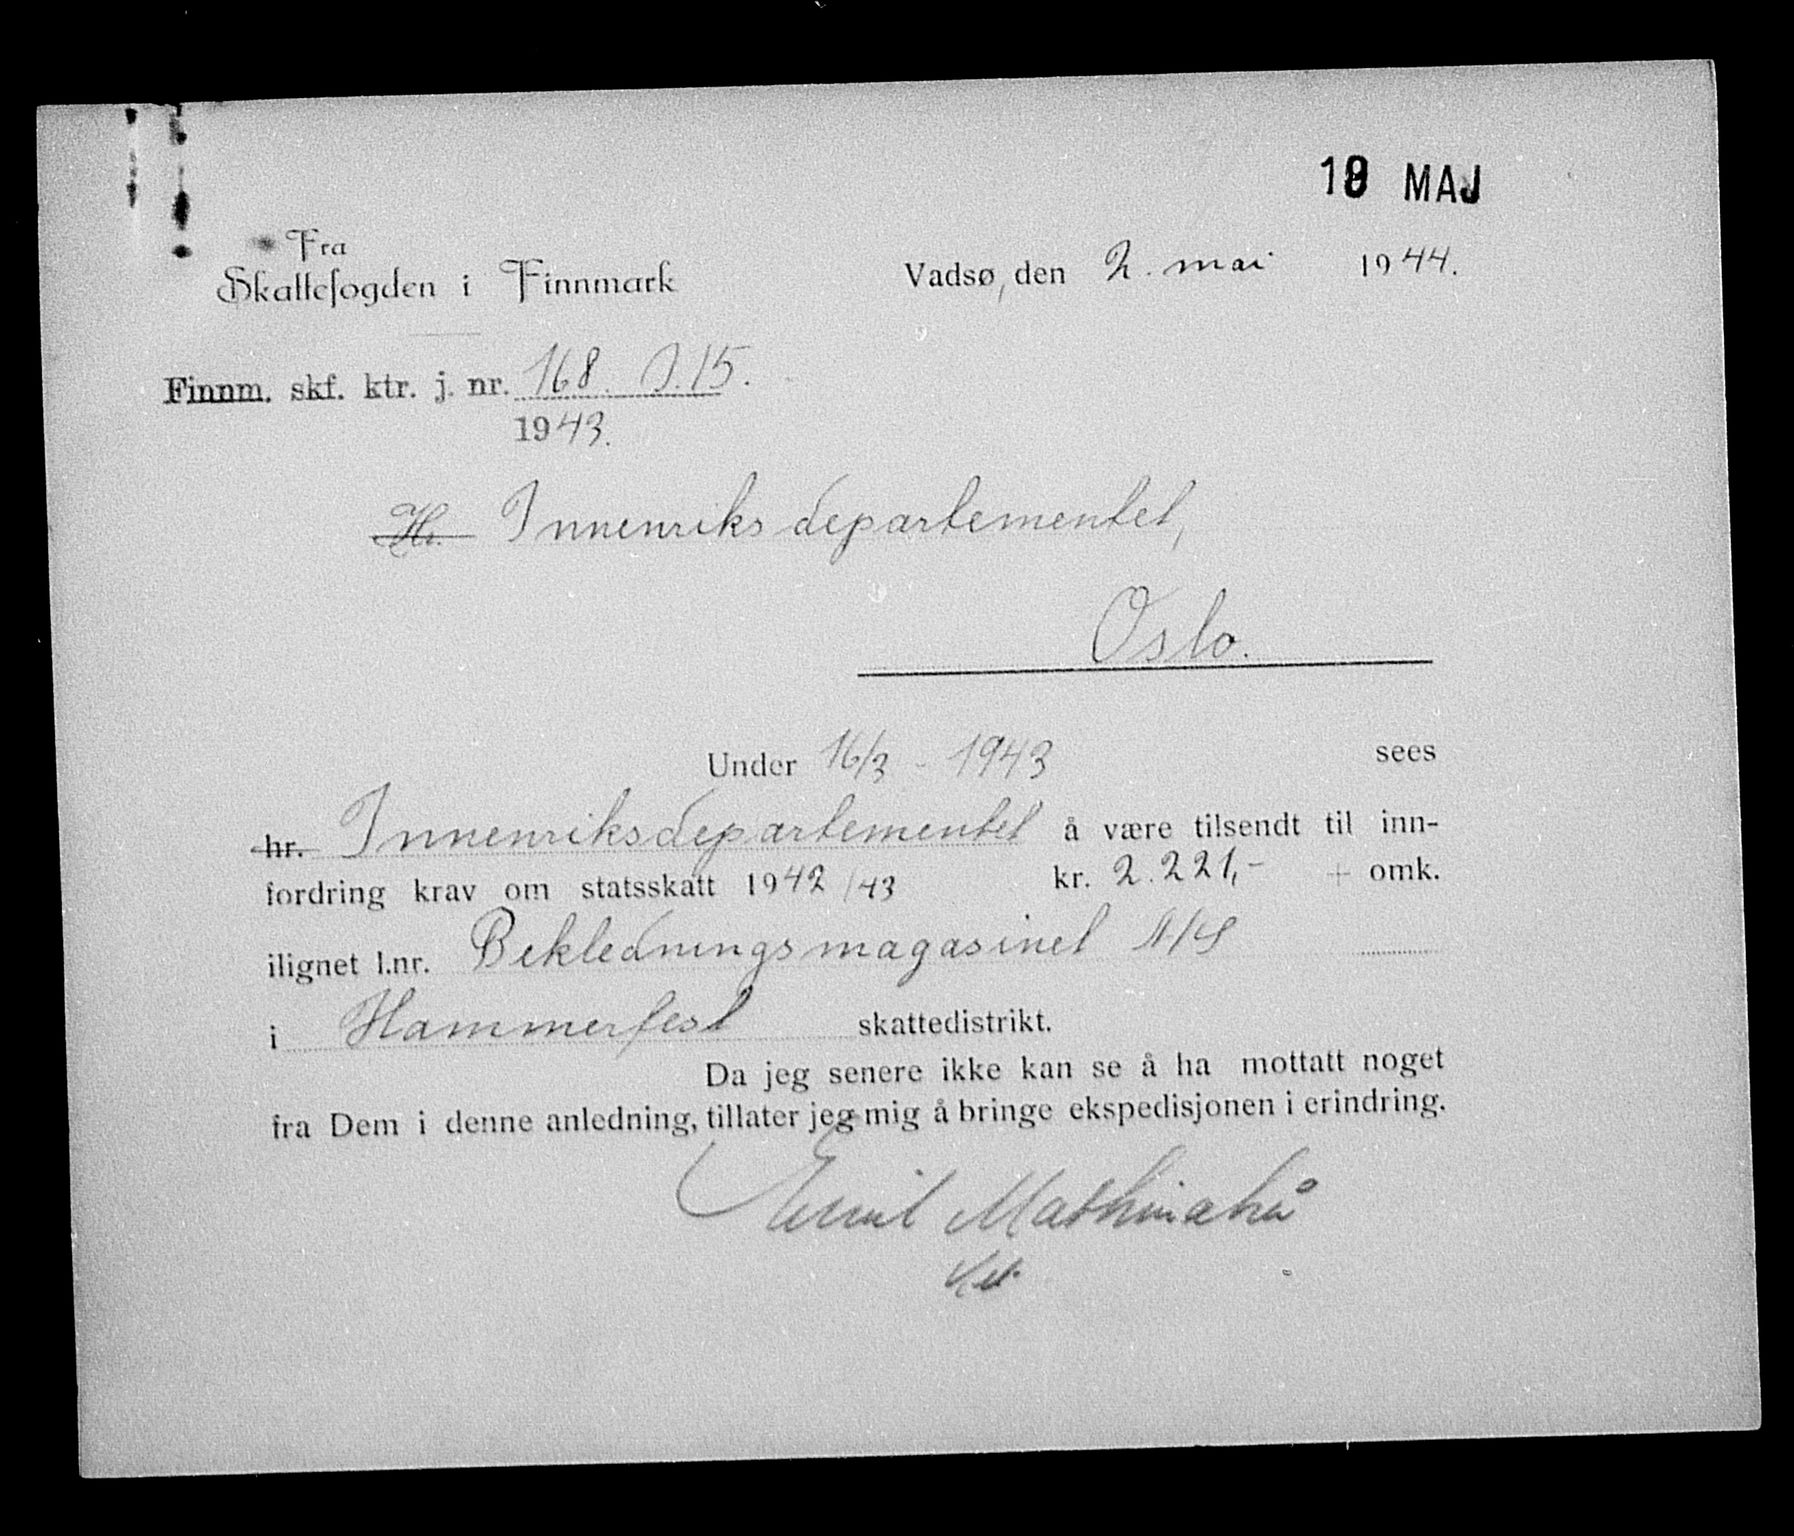 MAJ
Fra
Skattefogden i Finnmark
Vadsø, den 2. mai 1944.
Finnm. skf. ktr. j. nr. 168. J.15.
1943.
Hr. Innenriksdepartementet,
Oslo.
Under 16/3 - 1943 sees
hr. Innenriksdepartementet å være tilsendt til inn-
fordring krav om statsskatt 1942/43 kr. 2.221,- + omk.
ilignet l.nr. Bekledningsmagasinet A/S
i Hammerfest skattedistrikt.
Da jeg senere ikke kan se å ha mottatt noget
fra Dem i denne anledning, tillater jeg mig å bringe ekspedisjonen i erindring.
Emil